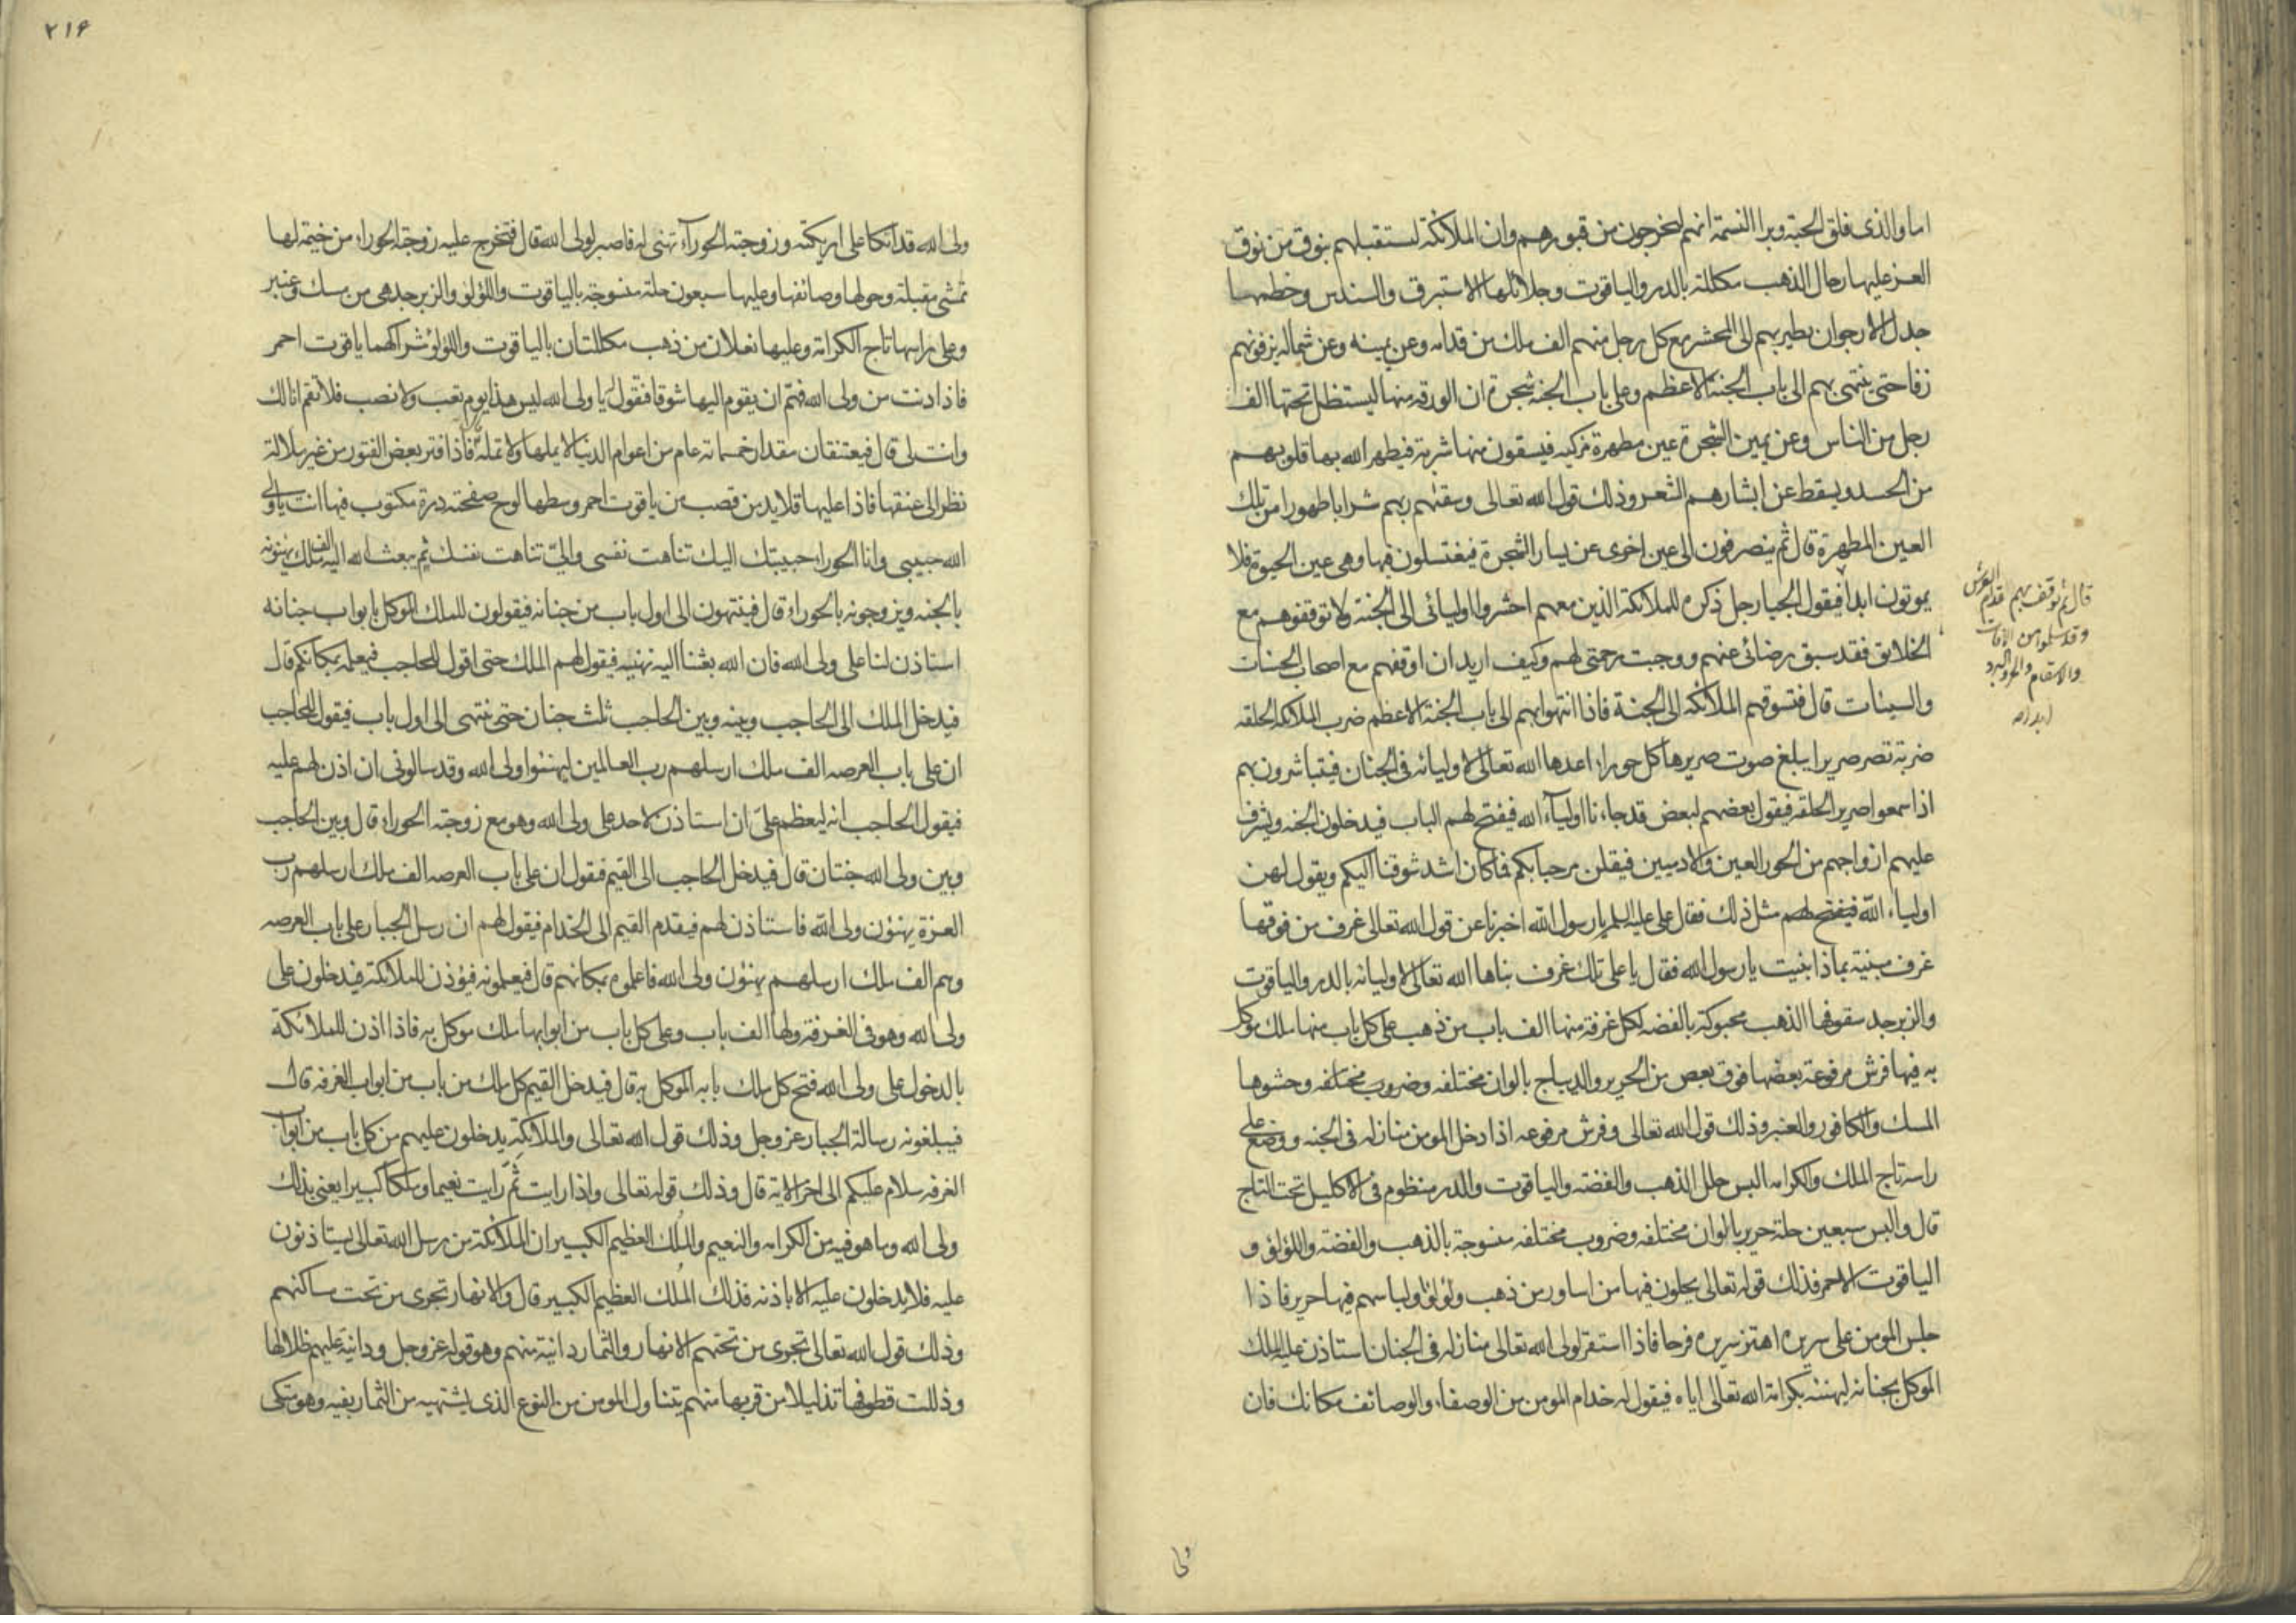 اما والذی فلق الحبة وبرا النسمة انهم لیخرجون من قبورهم وان الملائکة لتستقبلهم بنوق من نوق
العز علیها رحال الذهب مکللة بالدر والیاقوت وجلائلها الاستبرق والسندس وخطمها
جدل الارجوان یطیر بهم الی المحشر مع کل رجل منهم الف ملک من قدامه وعن یمینه وعن شماله یزفونهم
زفا حتی ینتهی بهم الی باب الجنة الاعظم وعلی باب الجنه شجرة ان الورقه منها لیستظل تحتها الف
رجل من الناس وعن یمین الشجرة عین مطهرة مزکیه فیسقون منها شربة فیطهر الله بها قلوبهم
من الحسد ویسقط عن ابشارهم الشعر وذلک قول الله تعالی وسقیهم ربهم شرابا طهورا من تلک
العین المطهرة قال ثم ینصرفون الی عین اخری عن یسار الشجرة فیغتسلون فیها وهی عین الحیوة فلا
یموتون ابدا فیقول الجبار جل ذکره للملائکة الذین معهم احشروا اولیائی الی الجنة ولا توقفوهم مع
الخلایق فقد سبق رضائی عنهم ووجبت رحمتی لهم وکیف ارید ان اوقفهم مع اصحاب الحسنات
والسیئات قال فتسوقهم الملائکه الی الجنة فاذا انتهوا بهم الی باب الجنة الاعظم ضرب الملائکه الحلقه
ضربة تصر صریرا یبلغ صوت صریرها کل حوراء اعدها الله تعالی لاولیائه فی الجنان فیتباشرون بهم
اذا سمعوا صریر الحلقه فیقول بعضهم لبعض قد جاءنا اولیاء الله فیفتح لهم الباب فیدخلون الجنه ویشرف
علیهم ازواجهم من الحور العین والادمیین فیقلن مرحبا بکم فما کان اشد شوقنا الیکم ویقول لهن
اولیاء الله فیفتح لهم مثل ذلک فقال علی علیه السلم یا رسول الله اخبرنا عن قول الله تعالی غرف من فوقها
غرف مبنیة بماذا بنیت یا رسول الله فقال یا علی تلک غرف بناها الله تعالی لاولیائه بالدر والیاقوت
والزبرجد سقوفها الذهب محبوکة بالفضه لکل غرفة منها الف باب من ذهب علی کل باب منها ملک موکل
به فیها فرش مرفوعة بعضها فوق بعض من الحریر والدیباج بالوان مختلفه وضروب مختلفه وحشوها
المسک والکافور والعنبر وذلک قول الله تعالی وفرش مرفوعه اذا دخل المومن منازله فی الجنه ووضع علی
راسه تاج الملک والکرامه البس حلل الذهب والفضه والیاقوت والدر منظوم فی الاکلیل تحت التاج
قال والبس سبعین حلة حریر بالوان مختلفه وضروب مختلفه منسوجة بالذهب والفضة واللؤلؤ و
الیاقوت الاحمر فذلک قوله تعالی یحلون فیها من اساور من ذهب ولؤلؤا ولباسهم فیها حریر فاذا
جلس المومن علی سریره اهتز سریره فرحا فاذا استقر لولی الله تعالی منازله فی الجنان استاذن علیه الملک
الموکل بجنانه لیهنئه بکرامة الله تعالی ایاه فیقول له خدام المومن من الوصفاء والوصائف مکانک فان
قال ثم توقف بهم قدام العرش
وقد سلموا من الافات
والاسقام والحر والبرد
ابدا
ولی
۲۱۶
ولی الله قد اتکا علی اریکته وزوجته الحوراء تهنی له فاصبر لولی الله قال فتخرج علیه زوجته الحوراء من خیمة لها
تمشی مقبلة وحولها وصائفها وعلیها سبعون حلة منسوجة بالیاقوت واللؤلؤ والزبرجد هی من مسک وعنبر
وعلی راسها تاج الکرامة وعلیها نعلان من ذهب مکللتان بالیاقوت واللؤلؤ شراکهما یاقوت احمر
فاذا دنت من ولی الله فهم ان یقوم الیها شوقا فتقول له یا ولی الله لیس هذا یوم تعب ولا نصب فلا تقم انا لک
وانت لی قال فیعتنقان مقدار خمسمائة عام من اعوام الدنیا لا یملها ولا تمله فاذا فتر بعض الفتور من غیر ملالة
نظر الی عنقها فاذا علیها قلاید من قصب من یاقوت احمر وسطها لوح صفحته درة مکتوب فیها انت یا ولی
الله حبیبی وانا الحوراء حبیبتک الیک تناهت نفسی والی تناهت نفسک ثم یبعث الله الیه الف ملک یهنونه
بالجنه ویزوجونه بالحوراء قال فینتهون الی اول باب من جنانه فیقولون للملک الموکل بابواب جنانه
استاذن لنا علی ولی الله فان الله بعثنا الیه نهنیه فیقول لهم الملک حتی اقول للحاجب فیعلمه بمکانکم قال
فیدخل الملک الی الحاجب وبینه وبین الحاجب ثلث جنان حتی ینتهی الی اول باب فیقول للحاجب
ان علی باب العرصه الف ملک ارسلهم رب العالمین لیهنئوا ولی الله وقد سالونی ان اذن لهم علیه
فیقول الحاجب انه لیعظم علی ان استاذن لاحد علی ولی الله وهو مع زوجته الحوراء قال وبین الحاجب
وبین ولی الله جنتان قال فیدخل الحاجب الی القیم فیقول ان علی باب العرصه الف ملک ارسلهم رب
العزة یهنؤن ولی الله فاستاذن لهم فیقدم القیم الی الخدام فیقول لهم ان رسل الجبار علی باب العرصه
وهم الف ملک ارسلهم یهنؤن ولی الله فاعلموه بمکانهم قال فیعلمونه فیؤذن للملائکة فیدخلون علی
ولی الله وهو فی الغرفة ولها الف باب وعلی کل باب من ابوابها ملک موکل به فاذا اذن للملائکة
بالدخول علی ولی الله فتح کل ملک بابه الموکل به قال فیدخل القیم کل ملک من باب من ابواب الغرفه قال
فیبلغونه رسالة الجبار عز وجل وذلک قول الله تعالی والملائکة یدخلون علیهم من کل باب من ابواب
الغرفه سلام علیکم الی اخر الایة قال وذلک قوله تعالی واذا رایت ثم رایت نعیما وملکا کبیرا یعنی بذلک
ولی الله وما هو فیه من الکرامه والنعیم والملک العظیم الکبیر ان الملائکة من رسل الله تعالی یستاذنون
علیه فلا یدخلون علیه الا باذنه فذلک الملک العظیم الکبیر قال والانهار تجری من تحت مساکنهم
وذلک قول الله تعالی تجری من تحتهم الانهار والثمار دانیة منهم وهو قوله عز وجل ودانیة علیهم ظلالها
وذللت قطوفها تذلیلا من قربها منهم یتناول المومن من النوع الذی یشتهیه من الثمار بفیه وهو متکی